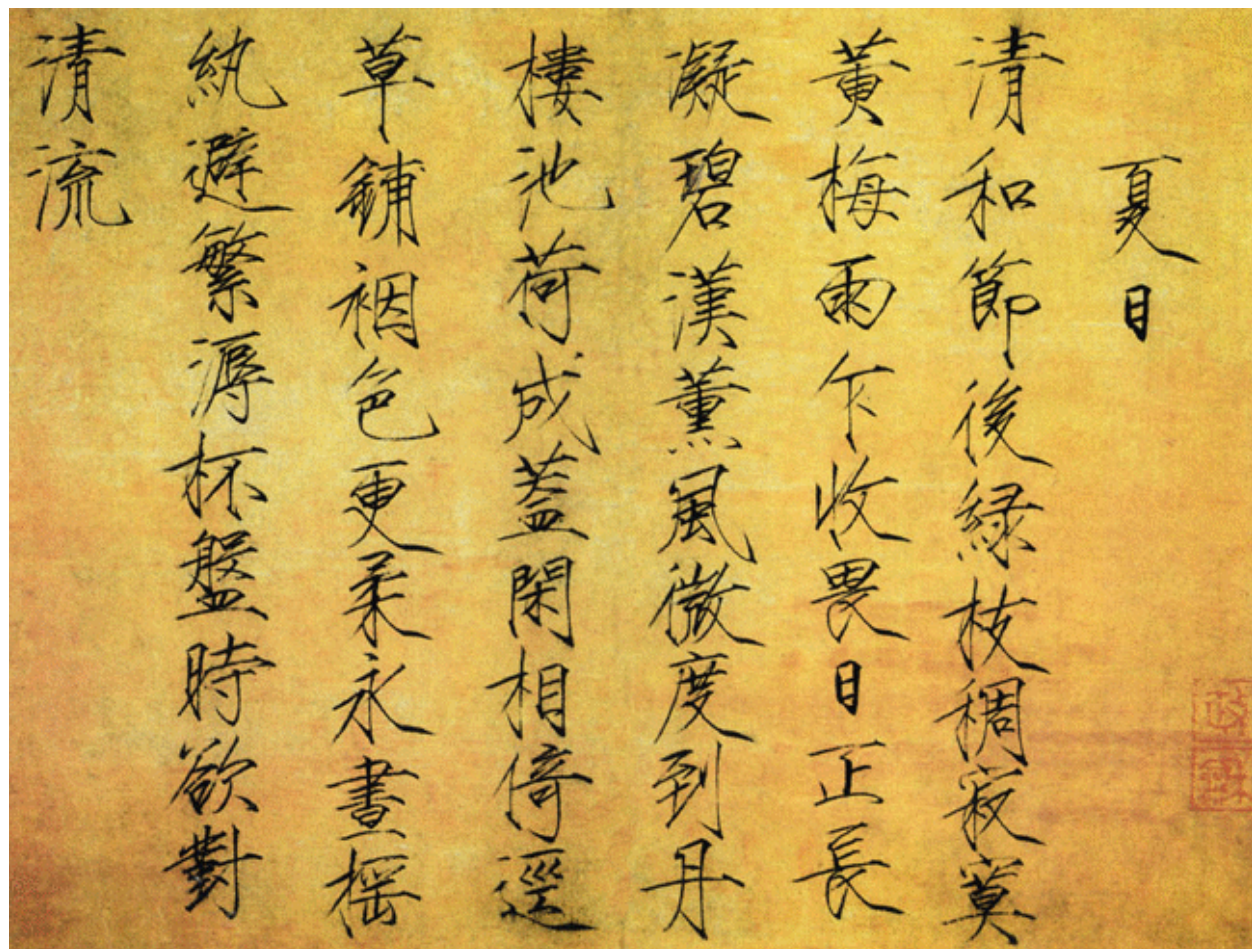 夏日
清和節後緑枝稠寂寞
黄梅雨乍收畏日正長
凝碧漢薰風微度到丹
樓池荷成蓋閑相倚逕
草鋪裀色更柔永晝揺
紈避繁溽杯盤時欲對
清流